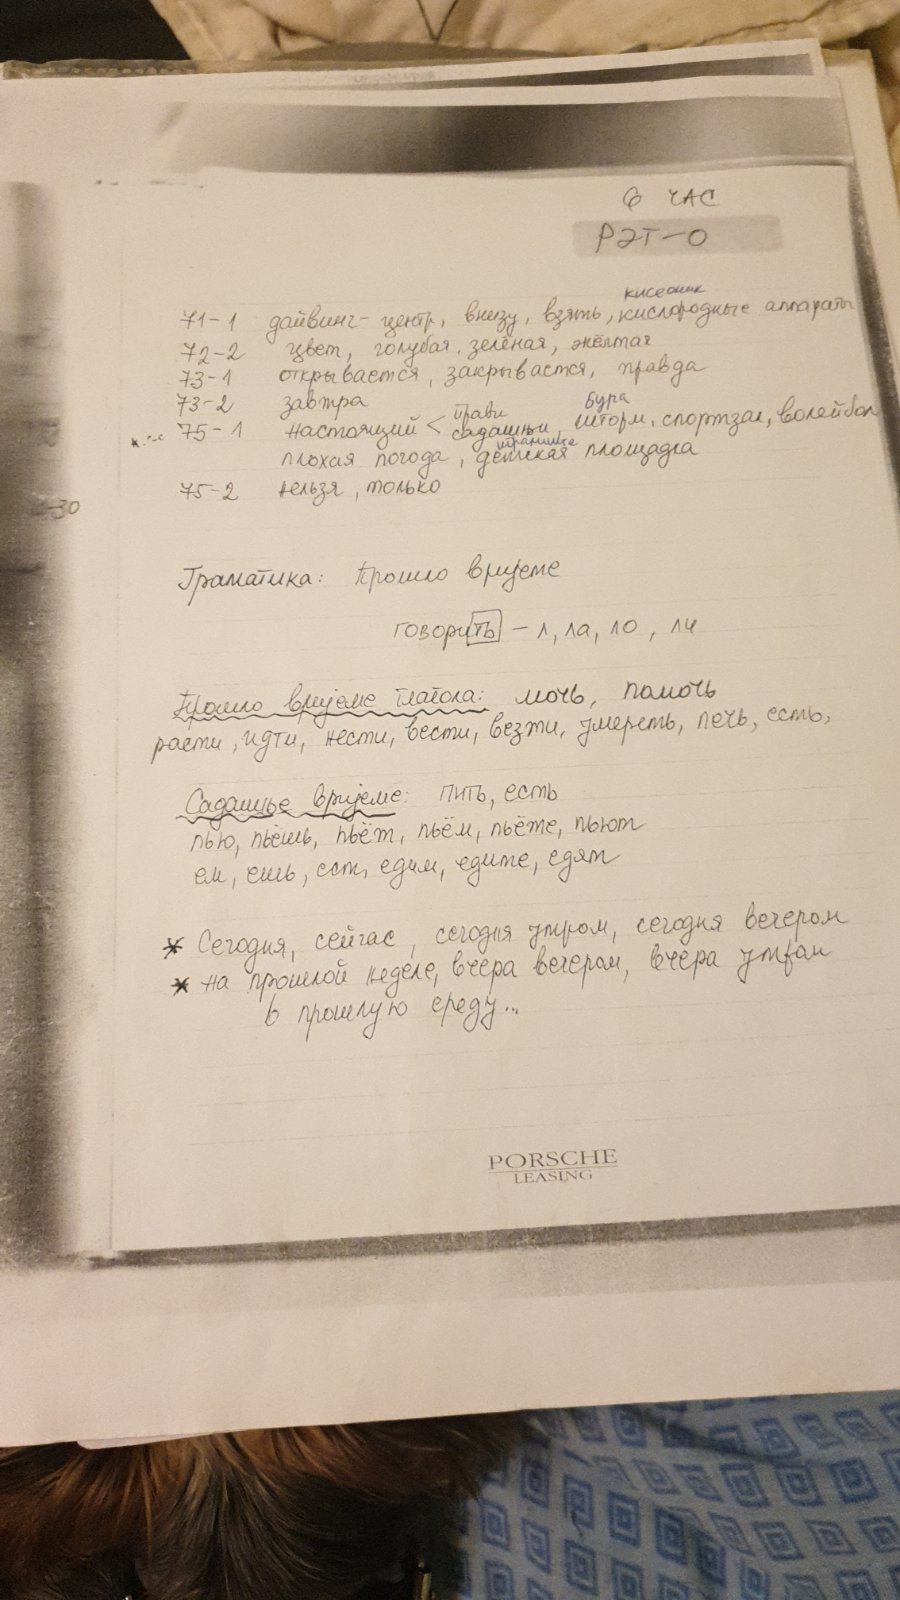 6 ЧАС
РЭТ-О
кисеоник
71-1 дайвинг-центр, внизу, взять, кислородные аппараты
72-2 цвет, голубая, зелёная, жёлтая
73-1 открывается, закрывается, правда
73-2 завтра
прави
бура
75-1 настоящий < садашњи, шторм, спортзал, волейбол
плохая погода, детская площадка
75-2 нельзя, только
-30
Граматика: Прошло вријеме
говорить – л, ла, ло, ли
Прошло вријеме глагола: мочь, помочь
расти, идти, нести, вести, везти, умереть, печь, есть,
Садашње вријеме: пить, есть
пью, пьёшь, пьёт, пьём, пьёте, пьют
ем, ешь, ест, едим, едите, едят
* Сегодня, сейчас, сегодня утром, сегодня вечером
* на прошлой неделе, вчера вечером, вчера утром
в прошлую среду...
PORSCHE
LEASING